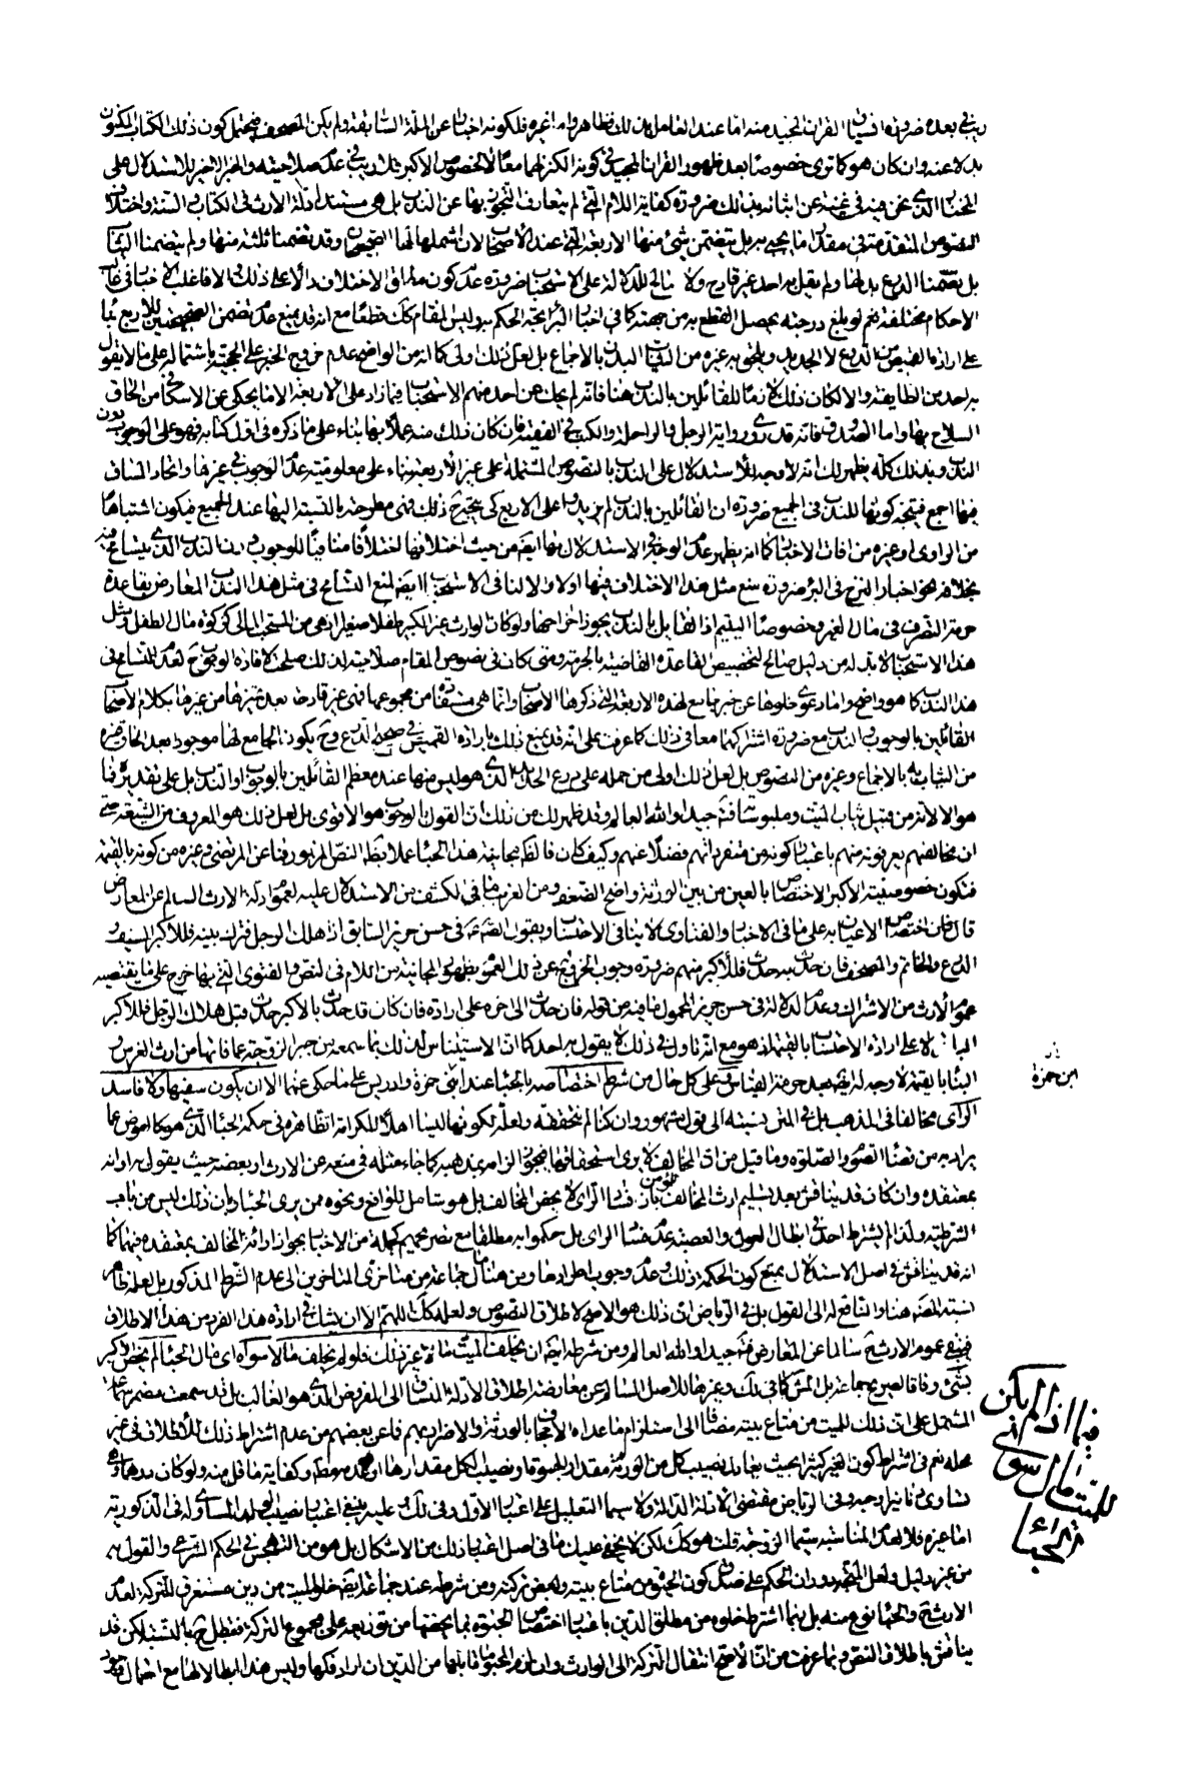 بعده ضرورة القران المجيد منه اما عند العامل بذلك فظاهر واما غيره فلكونه اخبارا عن الملة السابقة ولم يكن المصحف فيحتمل كون ذلك الكتاب المكنون
بدلا عنه وان كان هو كما ترى خصوصا بعد ظهور القران المجيد في كونه الكنز لهما معا لا لخصوص الاكبر فلا ريب في عدم صلاحيته والخبر الاخير للاستدلال على
الحباء الذي نحن فيه في غنية عن اثباته بذلك ضرورة كفاية اللام التي لم يتعارف التجوز بها عن الندب بل هي مستند ادلة الارث في الكتاب والسنة واختلاف
النصوص المتقدمة في مقدار ما يحبى به بل لم يتضمن شيء منها الاربعة التي عند الاصحاب لان اشملها لها الصحيحان وقد تضمنا ثلثة منها ولم يتضمنا الثياب
بل تضمنا الدرع بدلها ولم يقل به احد غير قادح ولا صالح للدلالة على الاستحباب ضرورة عدم كون مطلق الاختلاف دالا على ذلك والا فاغلب الاخبار في غالب
الاحكام مختلفة نعم لو بلغ درجته بحصل القطع به من جهته كما في اخبار البئر اتجه الحكم به وليس المقام كك قطعا مع انه قد يمنع عدم تضمن الصحيحين للاربع بناء
على ارادة القميص من الدرع لا الحديد ويلحق به غيره من الثياب البدن بالاجماع بل لعل ذلك اولى كما انه من الواضح عدم خروج الخبر على الحجية باشتماله على ما لا يقول
به احد من الطايفة والا لكان ذلك لازما للقائلين بالندب هنا فانه لم يحك عن احد منهم الاستحباب فيما زاد على الاربعة الا ما يحكى عن الاسكافي من الحاق
السلاح بها واما الصدوق فانه قد روى رواية الرحل والراحلة والكتب في الفقيه فان كان ذلك منه عملا بها بناء على ما ذكره في اول كتابه فهو على الوجوب دون
الندب وبذلك كله يظهر لك انه لا وجه للاستدلال على الندب بالنصوص المشتملة على غير الاربعة بناء على معلومية عدم الوجوب في غيرها واتحاد المساق
فيها اجمع فيتجه كونها للندب في الجميع ضرورة ان القائلين بالندب لم يزيدوا على الاربع كي يتجه ذلك فهي مطرحة بالنسبة اليها عند الجميع فيكون اشتباها
من الراوي او غيره من افات الاخبار كما انه يظهر عدم الوجه في الاستدلال بها ايضا من حيث اختلافها اختلافا منافيا للوجوب دون الندب الذي يتسامح فيه
بخلافه نحو اخبار النزح في البئر ضرورة منع مثل هذا الاختلاف فيها اولا والا لنافى الاستحباب ايضا لمنع التسامح في مثل هذا الندب المعارض بقاعدة
حرمة التصرف في مال الغير وخصوصا اليتيم اذ القائل بالندب يجوز اخراجها ولو كان الوارث غير الكبير طفلا صغيرا فهي من المستحب المالي كزكوة مال الطفل ومثل
هذا الاستحباب لا بد له من دليل صالح لتخصيص القاعدة القاضية بالحرمة ومتى كان في نصوص المقام صلاحية لذلك صلحت لافادة الوجوب ح لعدم التسامح في
هذا الندب كما هو واضح واما دعوى خلوها عن خبر جامع لهذه الاربعة التي ذكرها الاصحاب وانما هي مستفادة من مجموعها فهي غير قادحة بعد تميزها من غيرها بكلام الاصحاب
القائلين بالوجوب والندب مع ضرورة اشتراكهما معا في ذلك كما عرفت على انه قد يمنع ذلك بارادة القميص في صحيحة الدرع وح يكون الجامع لها موجودا بعد الحاق غيره
من الثياب به بالاجماع وغيره من النصوص بل لعل ذلك اولى من حمله على درع الحديد الذي هو ليس منها عند معظم القائلين بالوجوب او الندب بل على تقديره فما
هو الا لانه من قبيل ثياب الميت وملبوسه فتامل جيدا والله العالم وقد ظهر لك من ذلك ان القول بالوجوب هو الاقوى بل لعل ذلك هو المعروف من الشيعة حتى
ان مخالفهم يعرفونه منهم باعتبار كونه من متفرداتهم فضلا عنهم وكيف كان فالظاهر مجانية هذا الحباء عملا بظاهر النص المزبور وما عن المرتضى وغيره من كونه بالقيمة
فتكون خصوصيته الاكبر الاختصاص بالعين من بين الورثة واضح الضعف ومن الغريب ما في الكشف من الاستدلال عليه بعموم ادلة الارث السالم عن المعارض
قال فان اختصاص الاعيان به على ما في الاخبار والفتاوى لا ينافي الاحتساب ويقول الصادق ع في حسن حريز السابق اذا هلك الرجل فترك بنيه فللاكبر السيف و
الدرع والخاتم والمصحف فان حدث به حدث فللاكبر منهم ضرورة وجوب الخروج عن ذلك العموم بظهور المجانية من اللام في النص والفتوى التي بها خرج على ما يقتضيه
عموم الارث من الاشتراك وعدم الدلالة في حسن حريز المحمول ما فيه من قوله فان حدث الى اخره على ارادة فان كان قد حدث بالاكبر حدث قبل هلاك الرجل فللاكبر
الباقي لا على ارادة الاحتساب بالقيمة اذ هو مع انه تاول في ذلك لا يقول به احد كما ان الاستيناس لذلك بما سمعته من جبر الزوجة عما فاتها من ارث الغرس و
البناء بالقيمة لا وجه له ايضا بعد حرمة القياس وعلى كل حال من شرط اختصاصه بالحباء عند ابني حمزة وادريس على ما حكي عنهما الا ان يكون سفيها ولا فاسد
الراي مخالفا في المذهب بل في المتن نسبته الى قول مشهور وان كنا لم نتحققه ولعله لكونهما ليسا اهلا للكرامة الظاهرة في حكمة الحباء الذي هو كالعوض عما
يراد به من قضاء الصوم والصلوة وما قيل من ان المخالف لا يرى استحقاقها فيجوز الزامه بمذهبه كما جاء مثله في منعه عن الارث او بعضه حيث يقول به ادانة
بمعتقده وان كان قد يناقش بعد تسليم ارث المخالف بان فساد الراي لا يخص المخالف بل هو شامل للواقع ونحوه ممن يرى الحباء وبان ذلك ليس من باب
الشرطية ولذا لم يشترط احد في ابطال العول والعصبة عدم فساد الراي بل حكموا به مطلقا مع تصريحهم كجملة من الاخبار بجواز ادانة المخالف بمعتقده فيهما كما
انه قد يناقش في اصل الاستدلال بمنع كون الحكمة ذلك وعدم وجوب اطرادها ومن هنا مال جماعة من متاخري المتاخرين الى عدم الشرط المذكور بل لعله ظاهر
نسبته المصنف هنا والنافع له الى القول بل في الرياض ان ذلك هو الاصح لاطلاق النصوص ولعله كك اللهم الا ان يشك في ارادة هذا الفرد من هذا الاطلاق
فيبقى عموم الارث ح سالما عن المعارض فتامل جيدا والله العالم ومن شرطه ايضا ان يخلف الميت مالا غير ذلك فلو لم يخلف مالا سواه اي مال الحباء لم يخص الاكبر
بشيء وفاقا لصريح جماعة بل المشهور كما في لك وغيرها للاصل السالم عن معارضة اطلاق الادلة المنساق الى المفروض الذي هو الغالب بل قد سمعت مضمر سماعة
المشتمل على ان ذلك للميت من متاع بيته مضافا الى استلزام ما عداه الاجحاف بالورثة والاضرار بهم فما عن بعضهم من عدم اشتراط ذلك للاطلاق في غير
محله نعم في اشتراط كون الغير كثيرا بحيث يعادل نصيب كل من الورثة مقدار الحبوة او نصيب الكل مقدارها او عدمه وكفاية ما قل منه ولو كان
وفي الرياض مقتضى الادلة الدالة ولا سيما التعليل على اعتبار الاول وفي لك وعليه ينبغي اعتبار نصيب الولد المساوي له في الذكورية
اما غيره فلا لعدم المناسبة سيما الزوجة قلت هو كك لكن لا يخفى عليك ما في اصل اعتبار ذلك من الاشكال بل هو من التهجس في الحكم الشرعي والقول به
من غير دليل ولعل المتجه دوران الحكم على صدق كون الحبوة من متاع بيته ولبعض تركته ومن شرطه عند جماعة ايضا خلو الميت من دين مستغرق للتركة لعدم
الارث ح والحباء نوع منه بل ربما اشترط خلوه من مطلق الدين باعتبار اختصاص الحبوة بما يخصها من توزيعه على مجموع التركة فتبطل ح بالنسبة لكن قد
يناقش باطلاق النص وبما عرفت من ان الاصح انتقال التركة الى الوارث وان لزم المحبو مقابلها من الدين ان اراد فكها وليس هذا ابطالا لها مع احتمال
ابن حمزة
فيما اذا لم يكن
للميت مال سوى
الحباء